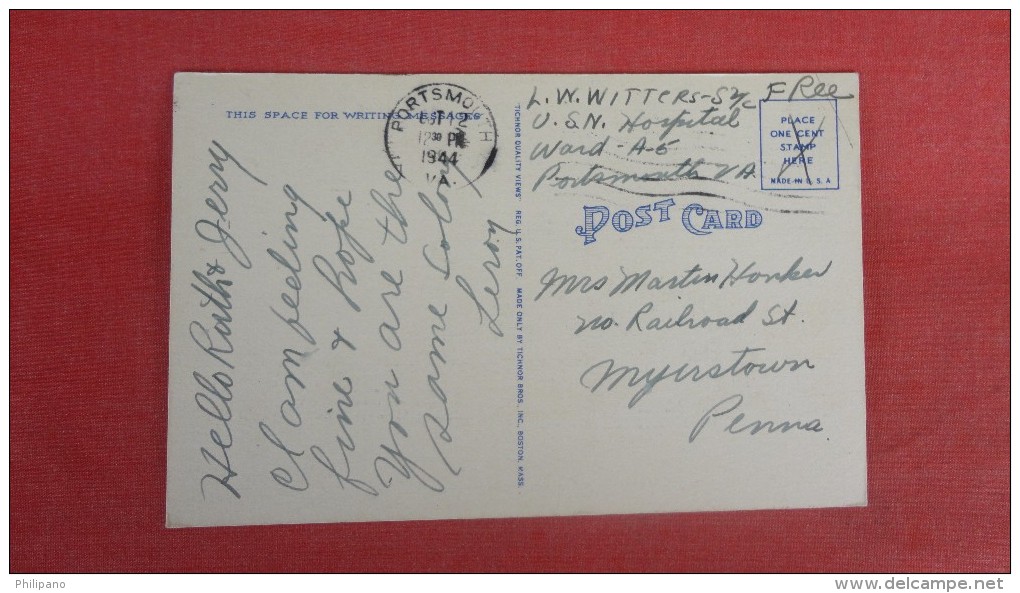 THIS SPACE FOR WRITING MESSAGES
PORTSMOUTH
OCT 12
12 30 PM
1944
VA.
Hello Ruth & Jerry
I am feeling
fine & hope
You are the
same. So long
Leroy
TICHNOR QUALITY VIEWS REG. U. S. PAT. OFF. MADE ONLY BY TICHNOR BROS. INC., BOSTON, MASS.
L. W. WITTERS - S 1/c Free
U.S.N. Hospital
Ward - A-5
Portsmouth VA.
PLACE
ONE CENT
STAMP
HERE
MADE IN U. S. A
POST CARD
Mrs Martin Honker
no. Railroad St.
Myerstown
Penna
Philipano
www.delcampe.net